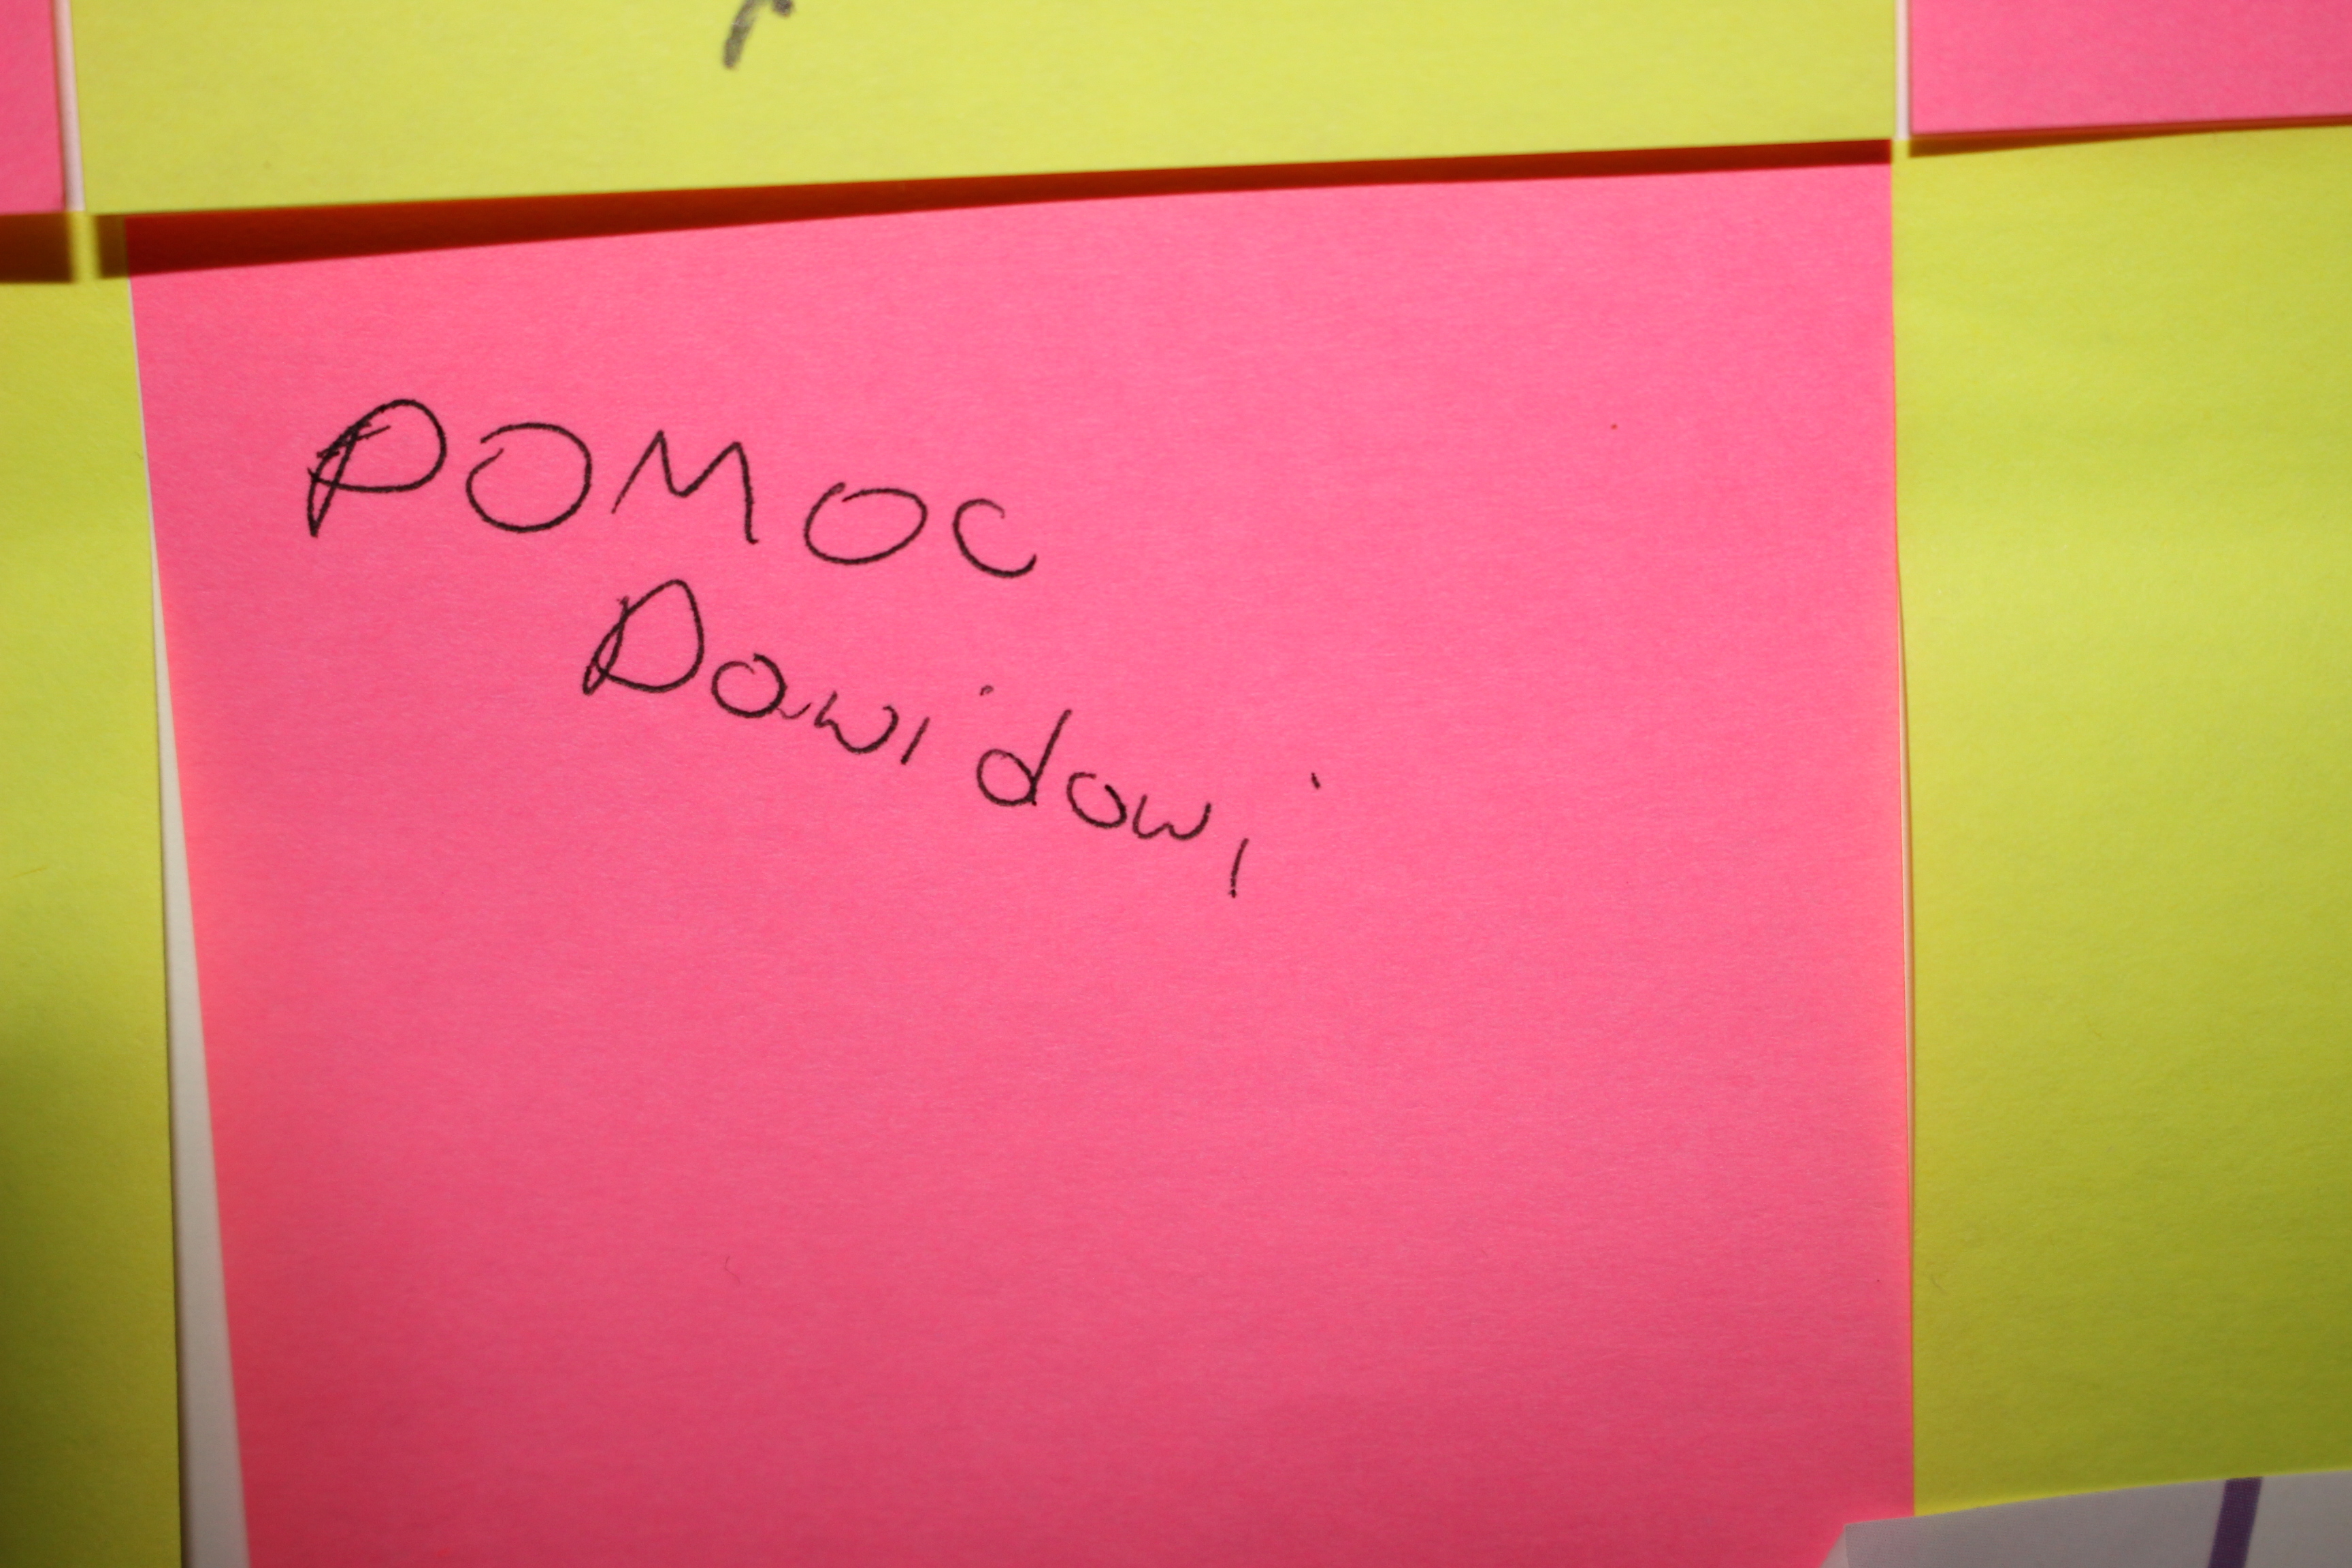 POMOC
Dawidowi